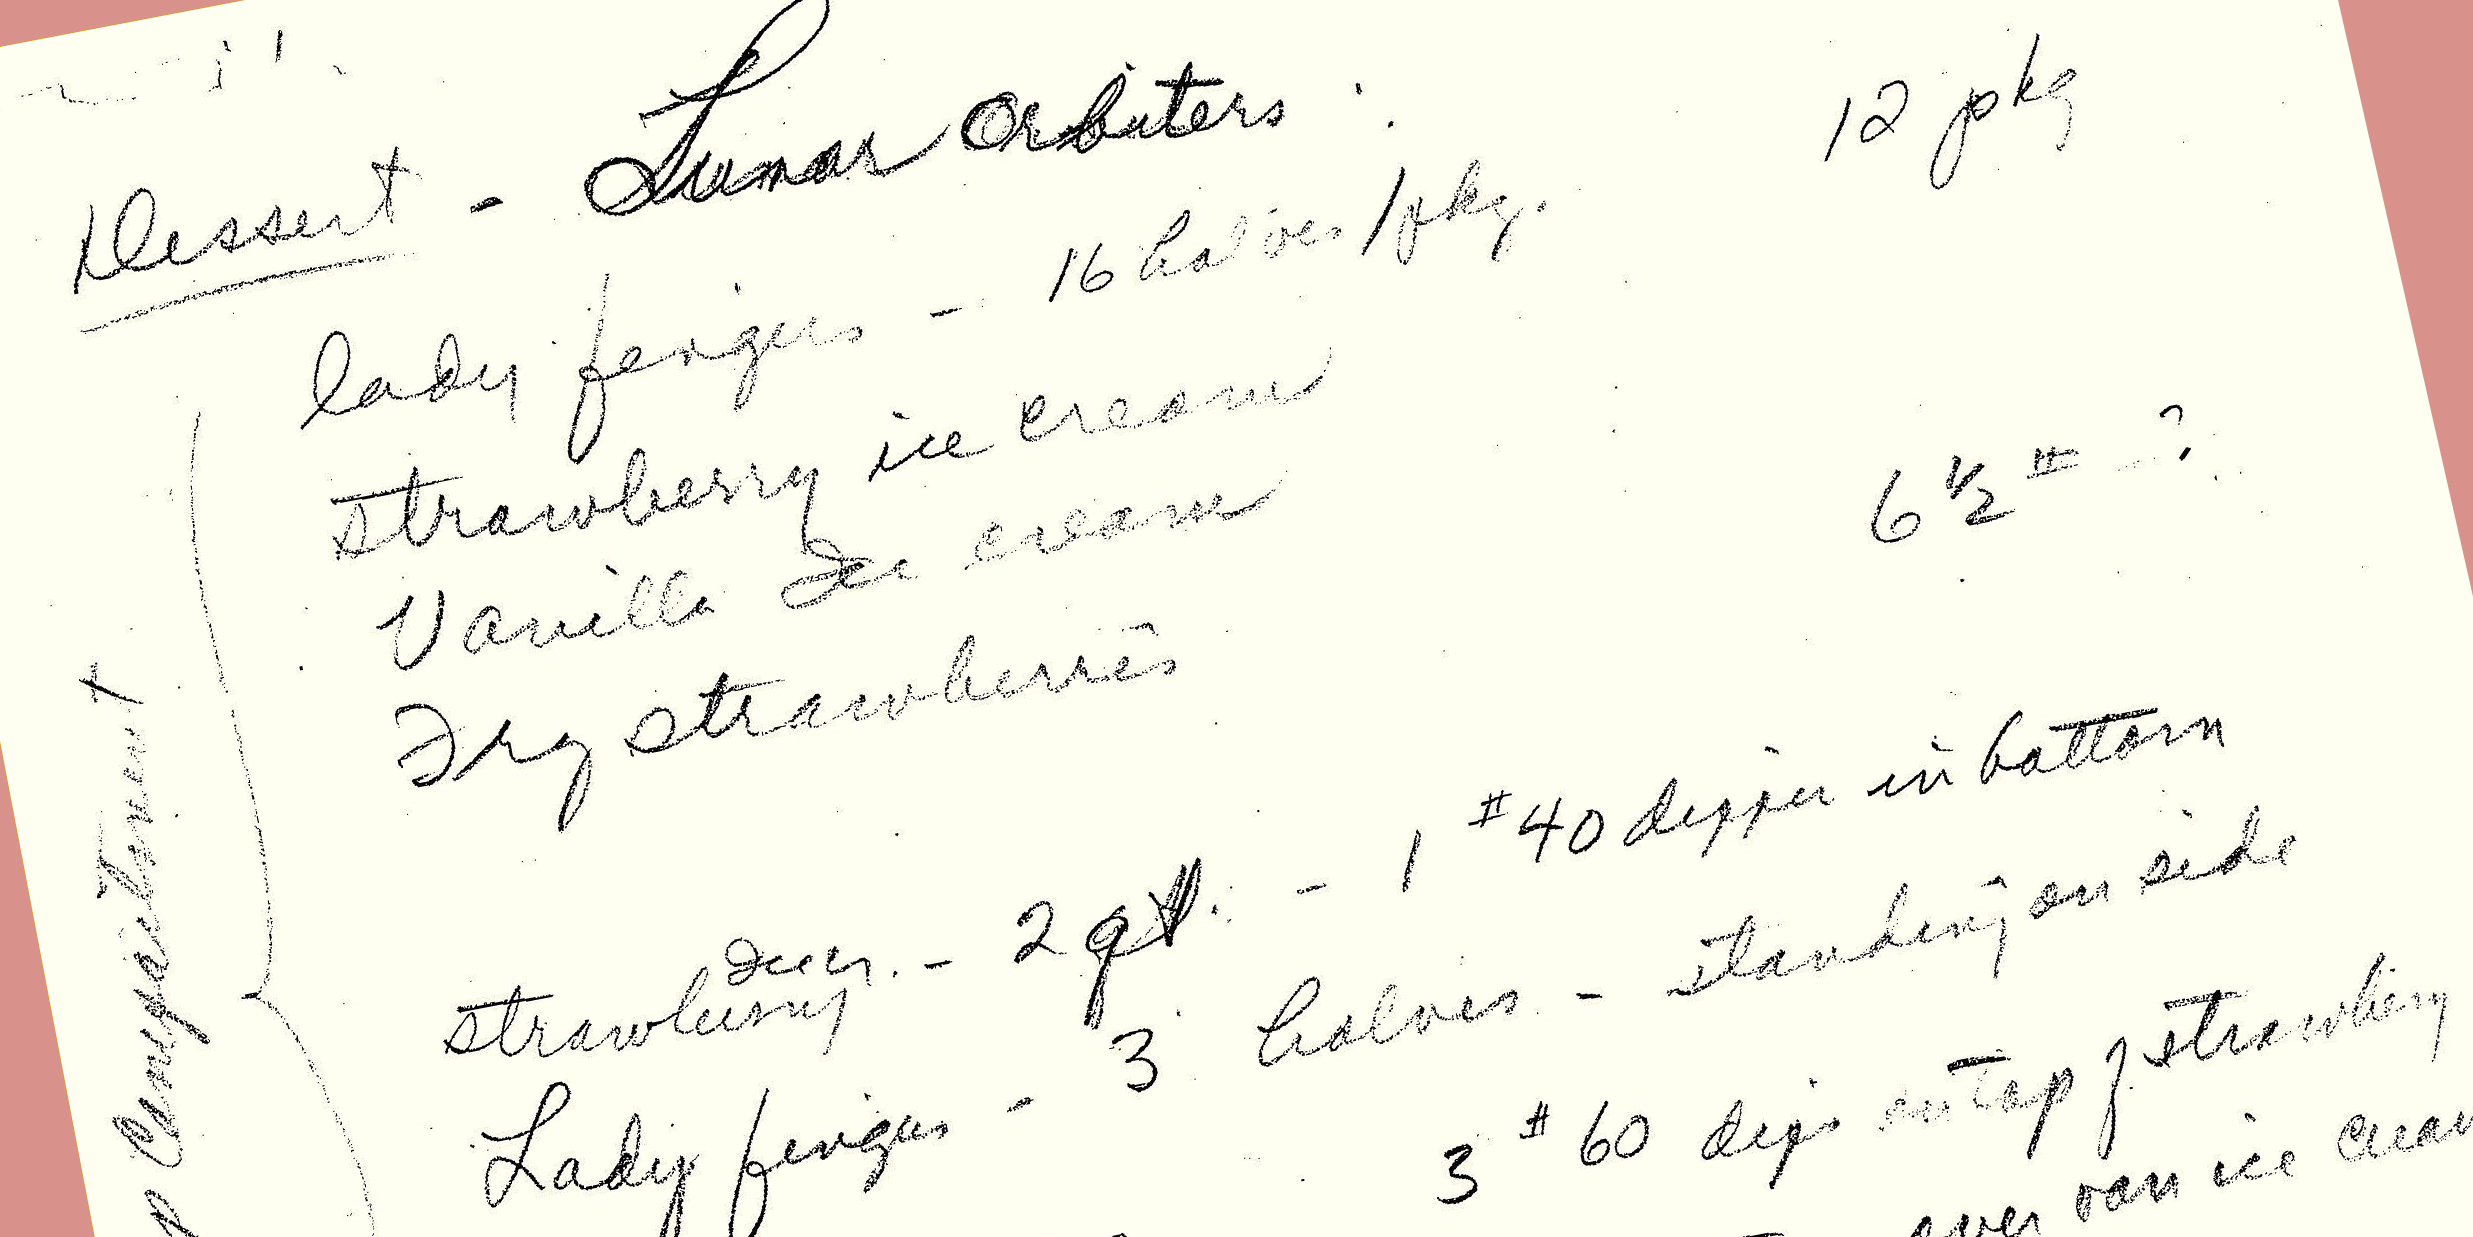 Dessert - Lunar Orbiters
12 pkg
lady fingers - 16 halves/pkg.
strawberry ice cream
Vanilla Ice cream
6 1/2 # - ?
Frz strawberries
strawberry - 2 qt. - 1 #40 dipper in bottom
Lady fingers - 3 halves - standing on side
3 #60 dips on top of strawberry
over van ice cream
Compartment